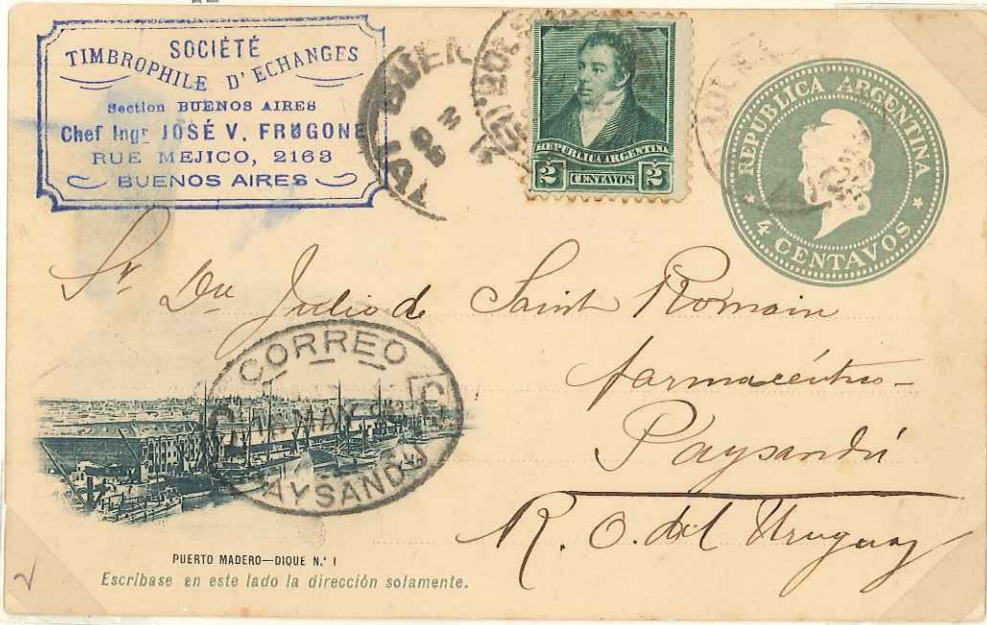 SOCIÉTÉ
TIMBROPHILE D'ECHANGES
Section BUENOS AIRES
Chef Ingr JOSÉ V. FRUGONE
RUE MEJICO, 2163
BUENOS AIRES
REPUBLICA ARGENTINA
2 CENTAVOS 2
REPUBLICA ARGENTINA
4 CENTAVOS
Sr Dn Julio de Saint Romain
farmacéutico
Paysandú
R. O. del Uruguay
CORREO
MAY
PAYSANDU
PUERTO MADERO—DIQUE N.° 1
Escríbase en este lado la dirección solamente.